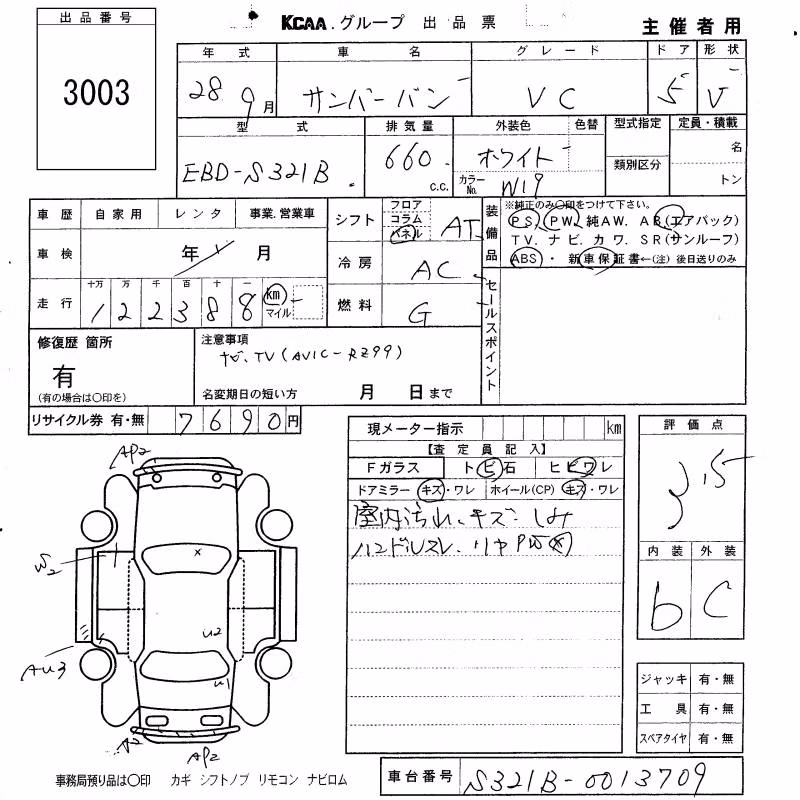 出品番号
3003
KCAA.グループ 出品票
主催者用
年式 車名 グレード ドア 形状
28 9月 サンバーバン VC 5 V
型式 排気量 外装色 色替 型式指定 定員・積載
EBD-S321B 660 c.c. ホワイト 名
カラーNo. W19 類別区分 トン
車歴 自家用 レンタ 事業.営業車
車検 年 月
走行 十万 万 千 百 十 一
122388 km マイル
シフト フロア コラム パネル AT
冷房 AC
燃料 G
装備品
※純正のみ〇印をつけて下さい。
PS. PW. 純AW. AB(エアバック)
TV. ナビ. カワ. SR(サンルーフ)
ABS ・ 新車保証書←(注) 後日送りのみ
セールスポイント
修復歴 箇所
有
(有の場合は〇印を)
注意事項
ナビ.TV(AVIC-RZ99)
名変期日の短い方 月 日まで
リサイクル券 有・無 7690円
現メーター指示 km
【査定員記入】
Fガラス トビ石 ヒビワレ
ドアミラー キズ・ワレ ホイール(CP) キズ・ワレ
室内汚れ、キズ、しみ
ハンドルスレ. リヤPW
評価点
3.5
内装 外装
b C
ジャッキ 有・無
工具 有・無
スペアタイヤ 有・無
AP2
W2
U2
AU3
U1
A2
AP2
事務局預り品は〇印 カギ シフトノブ リモコン ナビロム
車台番号 S321B-0013709